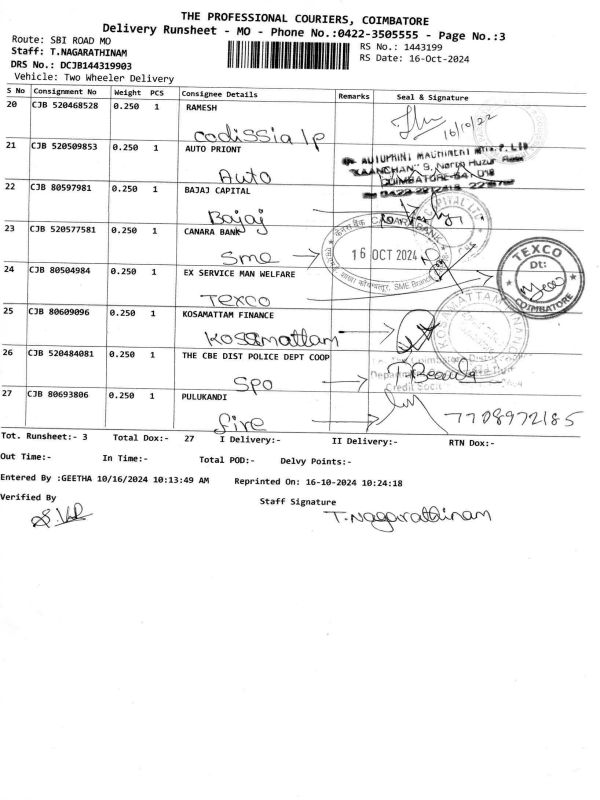 THE PROFESSIONAL COURIERS, COIMBATORE
Delivery Runsheet - MO - Phone No.:0422-3505555 - Page No.:3
Route: SBI ROAD MO
RS No.: 1443199
Staff: T.NAGARATHINAM
RS Date: 16-Oct-2024
DRS No.: DCJB144319903
Vehicle: Two Wheeler Delivery
S No Consignment No Weight PCS Consignee Details Remarks Seal & Signature
20 CJB 520468528 0.250 1 RAMESH
codissia lp
21 CJB 520509853 0.250 1 AUTO PRIONT
AUTOPRINT MACHINERY P. LTD
"KAANCHAN" 9, North Huzur Road
COIMBATORE-641 018
Auto
22 CJB 80597981 0.250 1 BAJAJ CAPITAL
Bajaj
23 CJB 520577581 0.250 1 CANARA BANK
CANARA BANK
16 OCT 2024
SME Branch
Sme
24 CJB 80504984 0.250 1 EX SERVICE MAN WELFARE
TEXCO
Dt:
COIMBATORE
Texco
25 CJB 80609096 0.250 1 KOSAMATTAM FINANCE
KOSAMATTAM FINANCE
Kosamattam
26 CJB 520484081 0.250 1 THE CBE DIST POLICE DEPT COOP
The Coimbatore District
Credit
T. Beaula
SPO
27 CJB 80693806 0.250 1 PULUKANDI
fire
7708972185
Tot. Runsheet:- 3 Total Dox:- 27 I Delivery:- II Delivery:- RTN Dox:-
Out Time:- In Time:- Total POD:- Delvy Points:-
Entered By :GEETHA 10/16/2024 10:13:49 AM Reprinted On: 16-10-2024 10:24:18
Verified By
Staff Signature
T.Nagarathinam